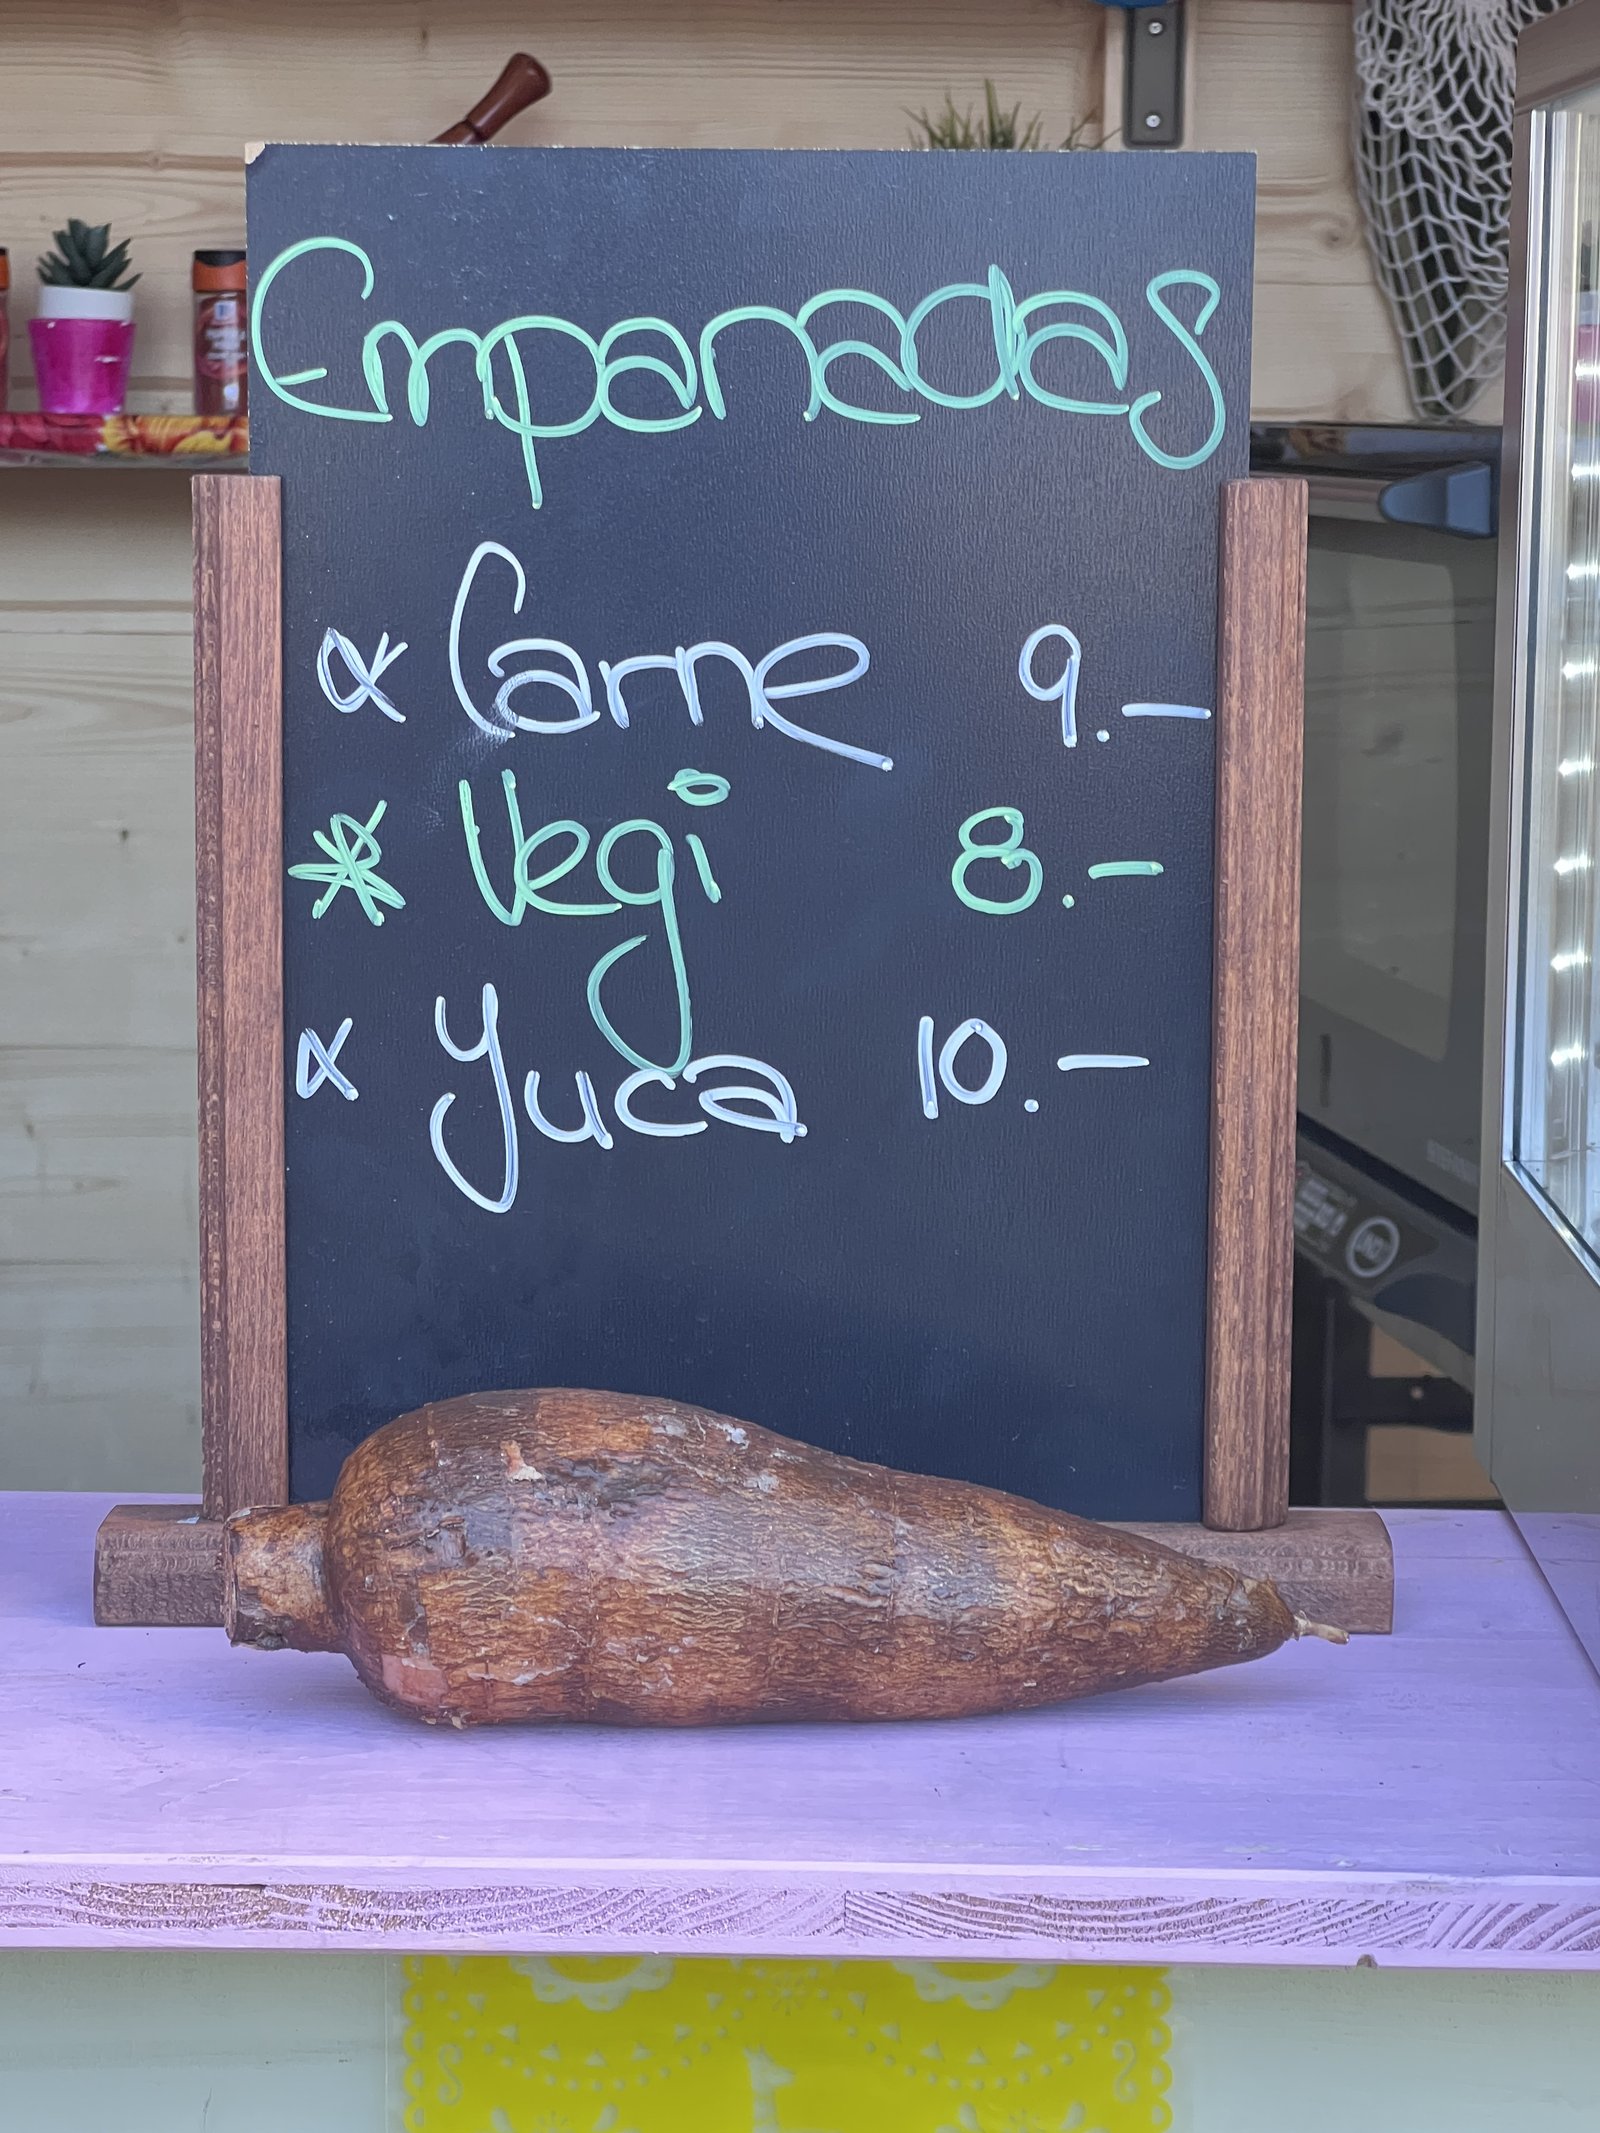 Empanadas
* Carne 9.-
* Vegi 8.-
* Yuca 10.-